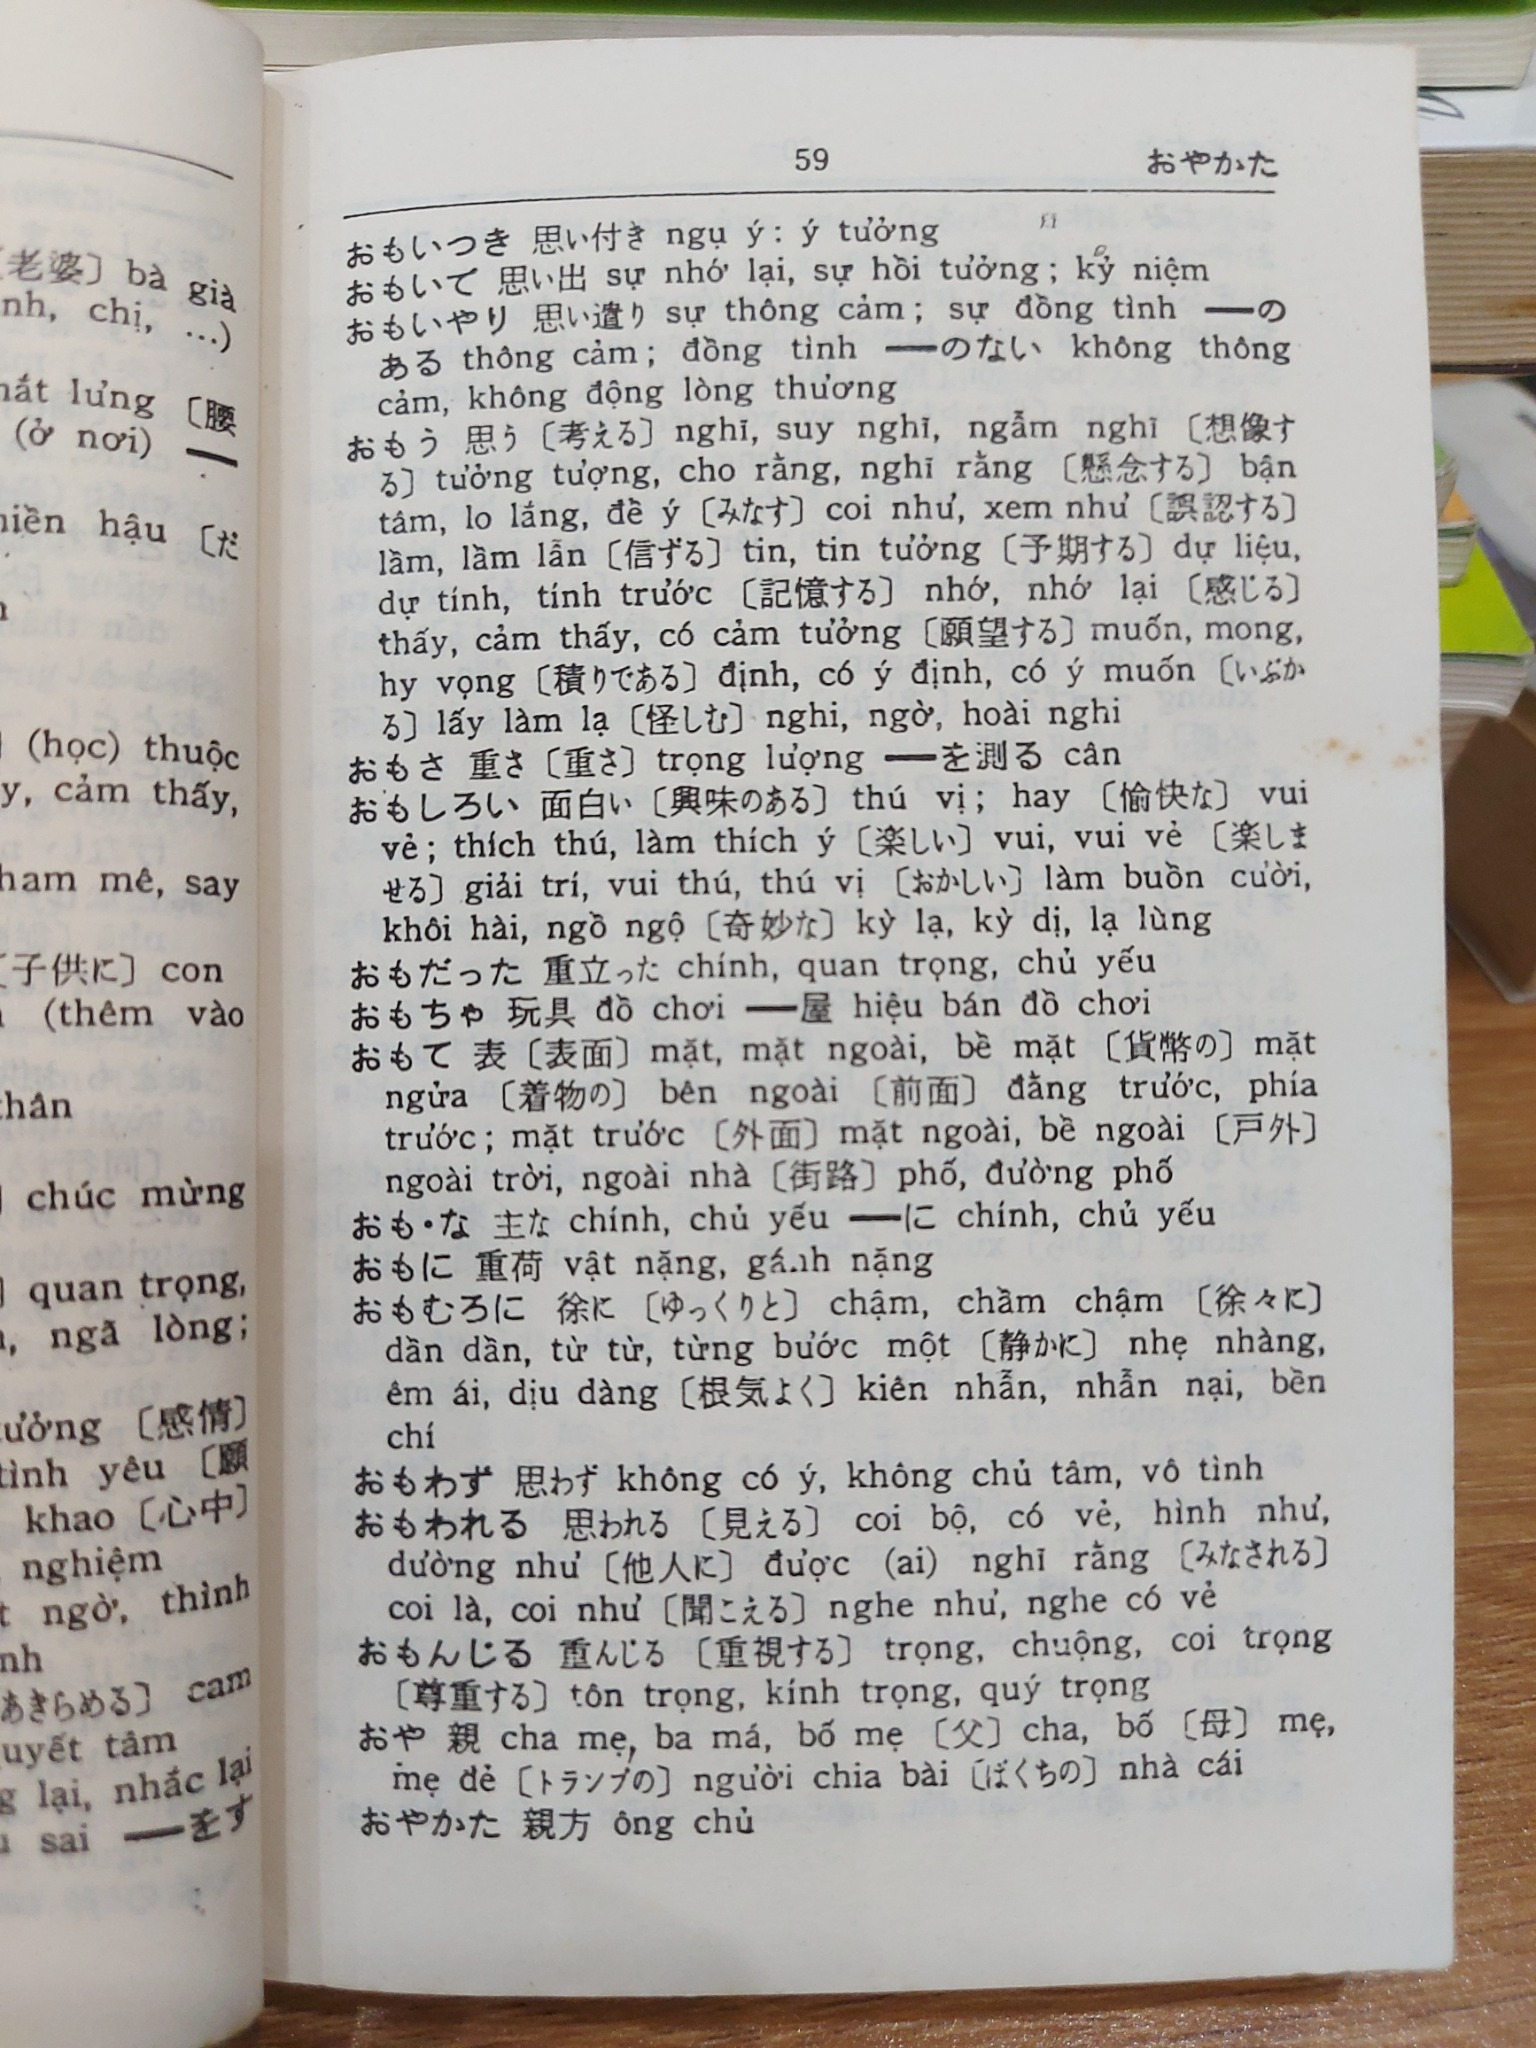 〔老婆〕bà già
nh, chị, …)
ắt lưng 〔腰
(ở nơi) ━━
iền hậu 〔だ
(học) thuộc
y, cảm thấy,
ham mê, say
〔子供に〕con
(thêm vào
thân
chúc mừng
quan trọng,
ngã lòng;
ưởng 〔感情〕
tình yêu 〔願
khao〔心中〕
nghiệm
ngờ, thình
nh
あきらめる〕cam
uyết tâm
g lại, nhắc lại
sai ━━をす
59 おやかた
おもいつき 思い付き ngụ ý: ý tưởng
おもいて 思い出 sự nhớ lại, sự hồi tưởng; kỷ niệm
おもいやり 思い遣り sự thông cảm; sự đồng tình ━━の
ある thông cảm; đồng tình ━━のない không thông
cảm, không động lòng thương
おもう 思う〔考える〕nghĩ, suy nghĩ, ngẫm nghĩ〔想像す
る〕tưởng tượng, cho rằng, nghĩ rằng〔懸念する〕bận
tâm, lo lắng, để ý〔みなす〕coi như, xem như〔誤認する〕
lầm, lầm lẫn〔信ずる〕tin, tin tưởng〔予期する〕dự liệu,
dự tính, tính trước〔記憶する〕nhớ, nhớ lại〔感じる〕
thấy, cảm thấy, có cảm tưởng〔願望する〕muốn, mong,
hy vọng〔積りである〕định, có ý định, có ý muốn〔いぶか
る〕lấy làm lạ〔怪しむ〕nghi, ngờ, hoài nghi
おもさ 重さ〔重さ〕trọng lượng ━━を測る cân
おもしろい 面白い〔興味のある〕thú vị; hay〔愉快な〕vui
vẻ; thích thú, làm thích ý〔楽しい〕vui, vui vẻ〔楽しま
せる〕giải trí, vui thú, thú vị〔おかしい〕làm buồn cười,
khôi hài, ngồ ngộ〔奇妙な〕kỳ lạ, kỳ dị, lạ lùng
おもだった 重立った chính, quan trọng, chủ yếu
おもちゃ 玩具 đồ chơi ━━屋 hiệu bán đồ chơi
おもて 表〔表面〕mặt, mặt ngoài, bề mặt〔貨幣の〕mặt
ngửa〔着物の〕bên ngoài〔前面〕đằng trước, phía
trước; mặt trước〔外面〕mặt ngoài, bề ngoài〔戸外〕
ngoài trời, ngoài nhà〔街路〕phố, đường phố
おも・な 主な chính, chủ yếu ━━に chính, chủ yếu
おもに 重荷 vật nặng, gánh nặng
おもむろに 徐に〔ゆっくりと〕chậm, chầm chậm〔徐々に〕
dần dần, từ từ, từng bước một〔静かに〕nhẹ nhàng,
êm ái, dịu dàng〔根気よく〕kiên nhẫn, nhẫn nại, bền
chí
おもわず 思わず không có ý, không chủ tâm, vô tình
おもわれる 思われる〔見える〕coi bộ, có vẻ, hình như,
dường như〔他人に〕được (ai) nghĩ rằng〔みなされる〕
coi là, coi như〔聞こえる〕nghe như, nghe có vẻ
おもんじる 重んじる〔重視する〕trọng, chuộng, coi trọng
〔尊重する〕tôn trọng, kính trọng, quý trọng
おや 親 cha mẹ, ba má, bố mẹ〔父〕cha, bố〔母〕mẹ,
mẹ đẻ〔トランプの〕người chia bài〔ばくちの〕nhà cái
おやかた 親方 ông chủ